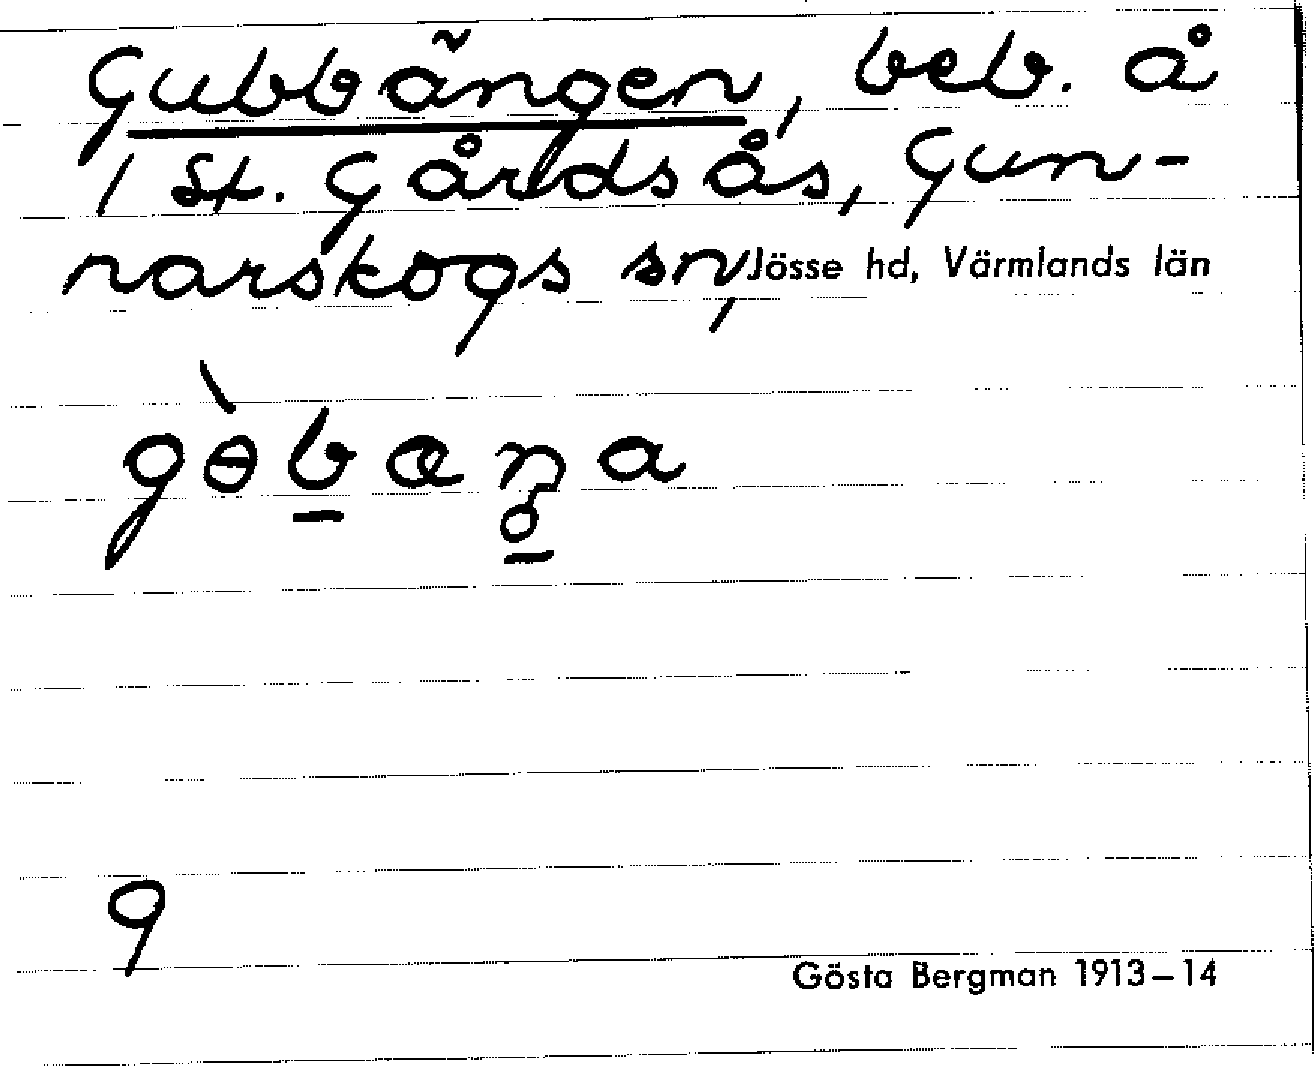 Gubbängen, beb. å
1 St. Gårdsås, Gun-
narskogs sn, Jösse hd, Värmlands län
gɵ̀b̲aŋ̲a
9
Gösta Bergman 1913–14